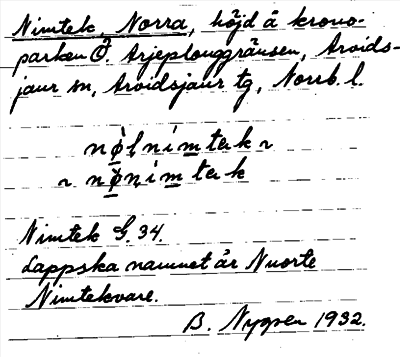 Nimtek, Norra, höjd å krono-
parken Ö. Arjeplouggränsen, Arvids-
jaur sn, Arvidsjaur tg, Norrb. l.
nø̀l nímtek ~
~ nø̀nímtek
Nimtek G. 34.
Lappska namnet är Nuorte
Nimtekvare.
B. Nygren 1932.